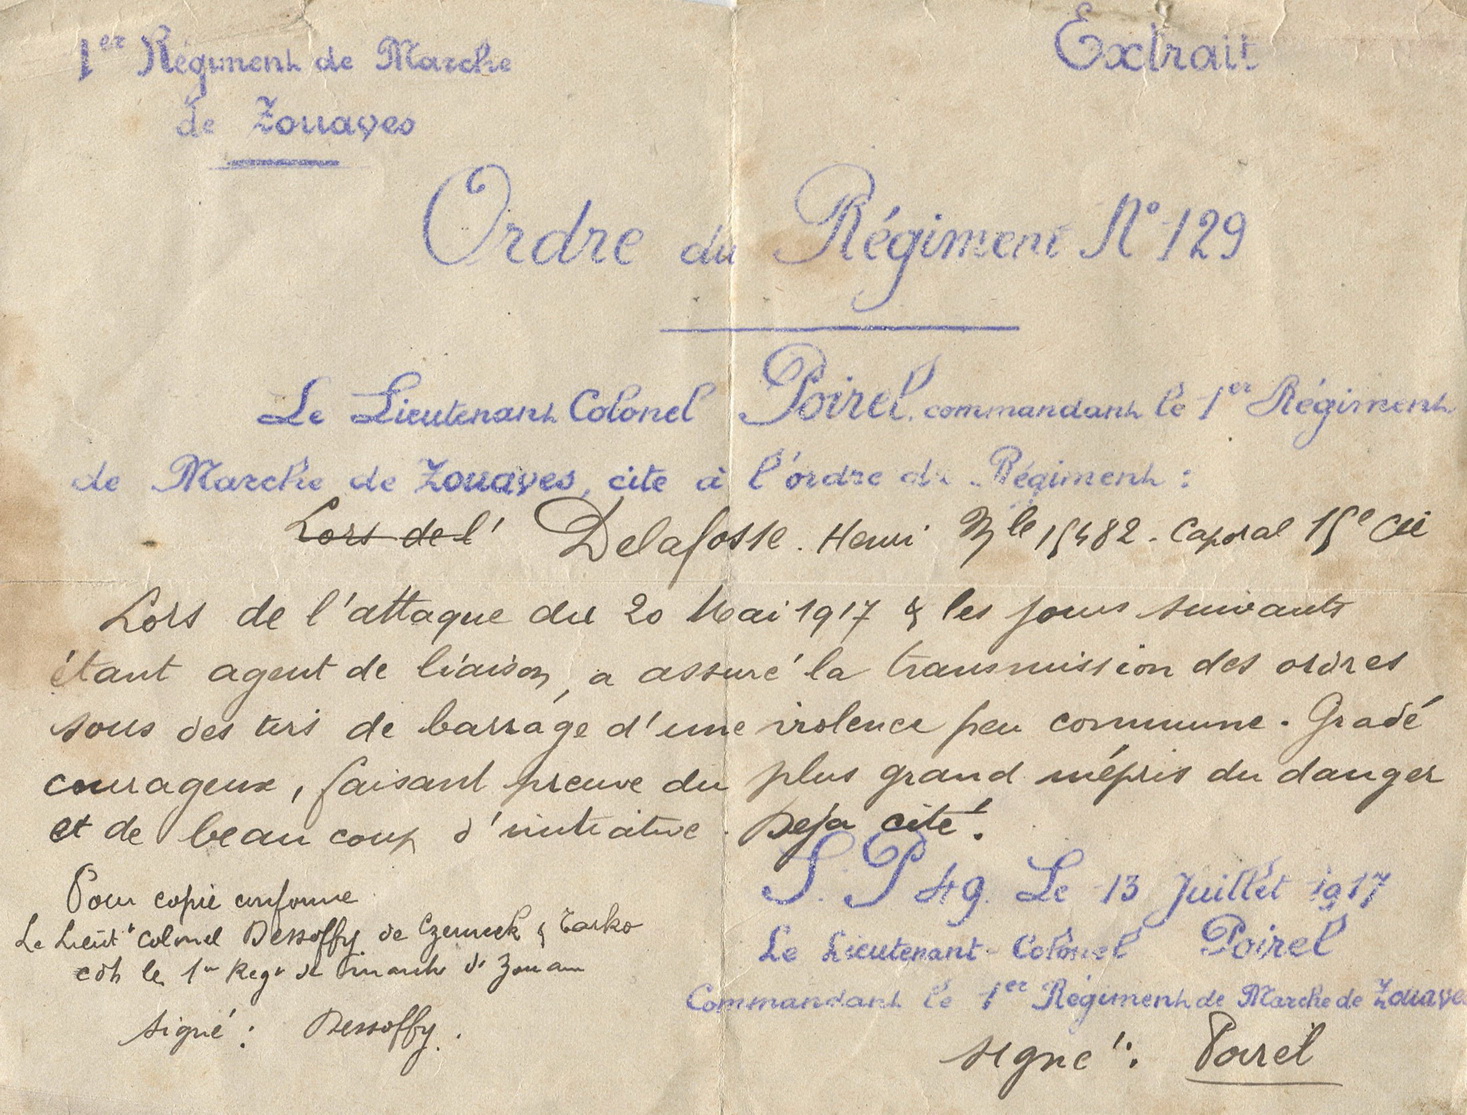 1er Régiment de Marche
de Zouaves
Extrait
Ordre du Régiment N° 129
Le Lieutenant Colonel Poirel commandant le 1er Régiment
de Marche de Zouaves, cite à l'ordre du Régiment :
Lors de l' Delafosse. Henri Mle 15482. Caporal 15e Cie
Lors de l'attaque du 20 Mai 1917 & les jours suivants
étant agent de liaison, a assuré la transmission des ordres
sous des tirs de barrage d'une violence peu commune. Gradé
courageux, faisant preuve du plus grand mépris du danger
et de beaucoup d'initiative. Déjà cité.
S. P 49. Le 13 Juillet 1917
Le Lieutenant-Colonel Poirel
Commandant le 1er Régiment de Marche de Zouaves
signé : Poirel
Pour copie conforme
Le Lieut Colonel Dessoffy de Czerneck & Tarko
cdt le 1er Regt de marche de Zouaves
signé : Dessoffy.